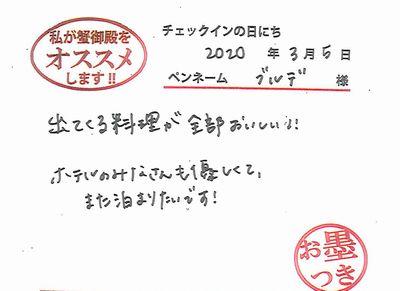 私が蟹御殿を
オススメ
します!!
チェックインの日にち
2020 年 3月 5 日
ペンネーム ブルデ 様
出てくる料理が全部おいしい!!
ホテルのみなさんも優しくて、
また泊まりたいです!
お墨
つき